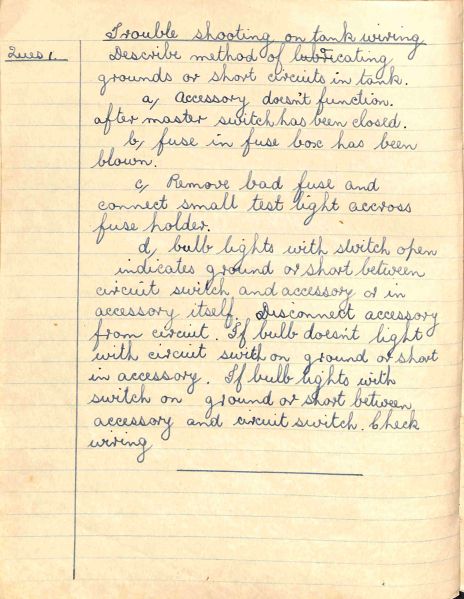 Trouble shooting on tank wiring
Ques 1.
Describe method of lubricating
grounds or short circuits in tank.
a, Accessory doesn't function.
after master switch has been closed.
b, fuse in fuse box has been
blown.
c, Remove bad fuse and
connect small test light accross
fuse holder.
d, bulb lights with switch open
indicates ground or short between
circuit switch and accessory or in
accessory itself. Disconnect accessory
from circuit. If bulb doesn't light
with circuit swith on ground or short
in accessory. If bulb lights with
switch on ground or short between
accessory and circuit switch. Check
wiring